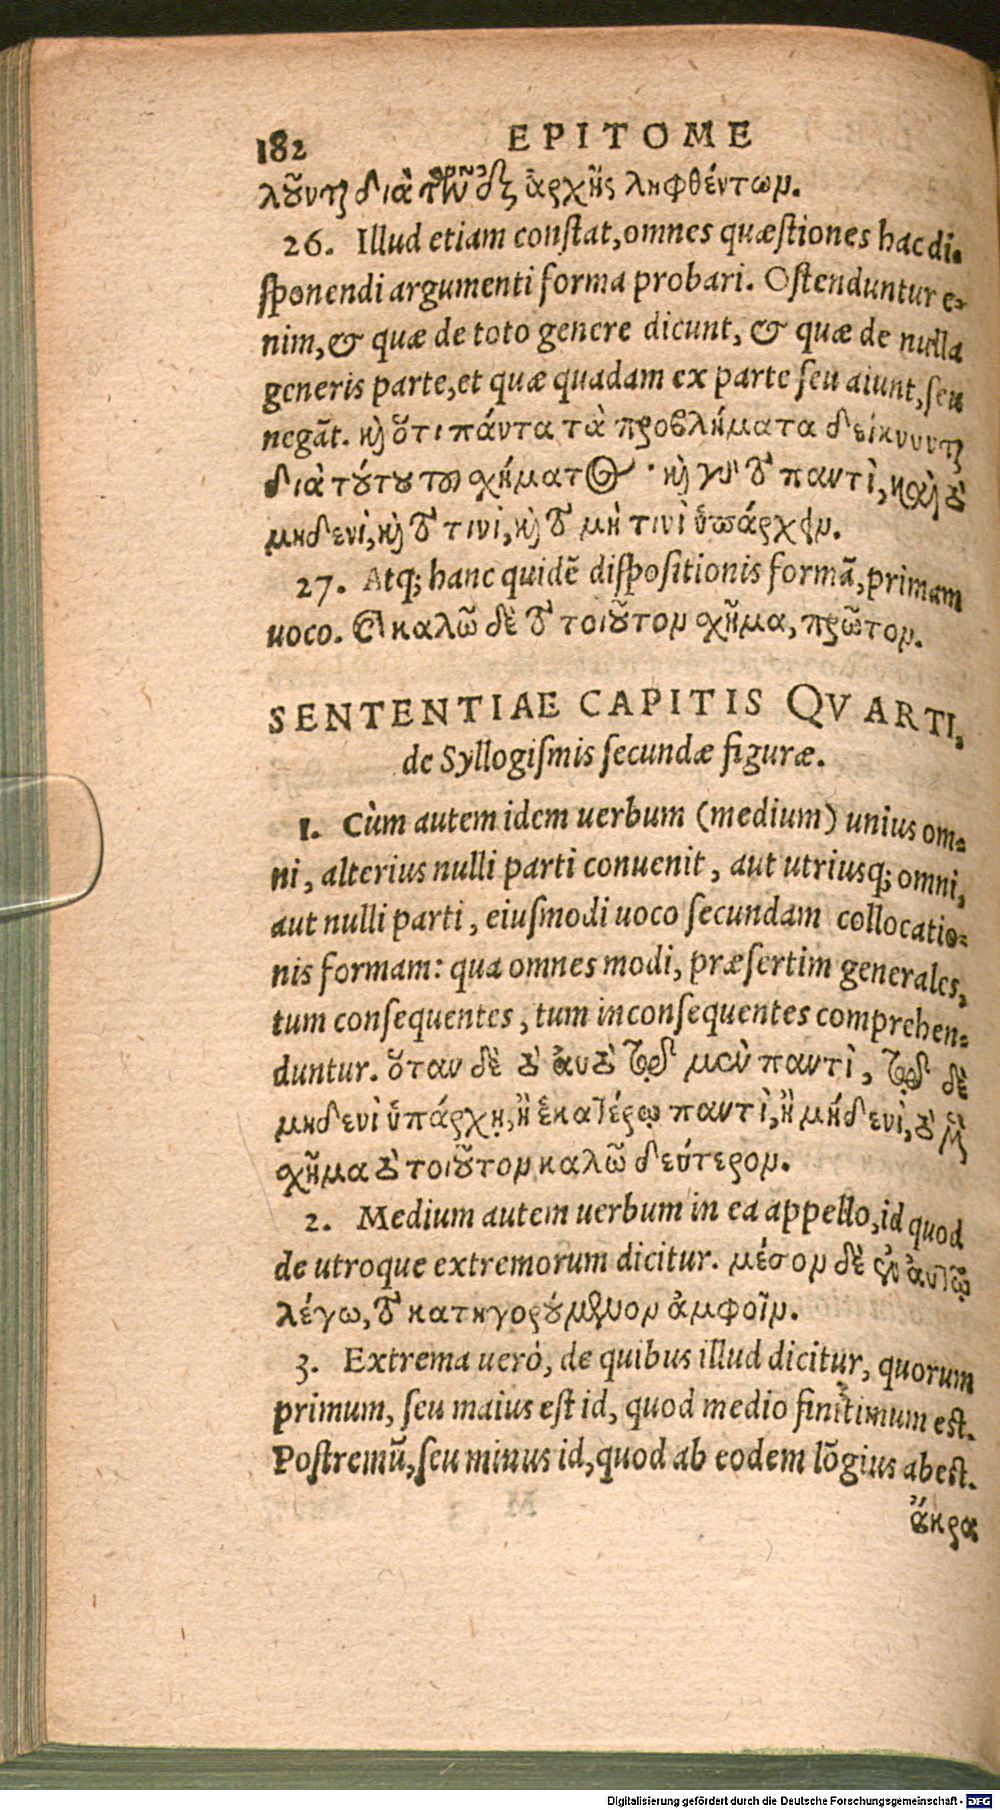 182 EPITOME
λοῦνται διὰ τῶν ἐξ ἀρχῆς ληφθέντων.
26. Illud etiam conſtat, omnes quæſtiones hac di-
ſponendi argumenti forma probari. Oſtenduntur e-
nim, & quæ de toto genere dicunt, & quæ de nulla
generis parte, et quæ quadam ex parte ſeu aiunt, ſeu
negãt. καὶ ὅτι πάντα τὰ προβλήματα δείκνυνται
διὰ τούτου τοῦ σχήματος· καὶ γὰρ τὸ παντὶ, καὶ τὸ
μηδενὶ, καὶ τὸ τινὶ, καὶ τὸ μὴ τινὶ ὑπάρχειν.
27. Atq; hanc quidẽ diſpoſitionis formã, primam
uoco. Καλῶ δὲ τὸ τοιοῦτον σχῆμα, πρῶτον.
SENTENTIAE CAPITIS QVARTI,
de Syllogiſmis ſecundæ figuræ.
1. Cùm autem idem uerbum (medium) unius om-
ni, alterius nulli parti conuenit, aut utriusq; omni,
aut nulli parti, eiuſmodi uoco ſecundam collocatio-
nis formam: qua omnes modi, præſertim generales,
tum conſequentes, tum inconſequentes comprehen-
duntur. ὅταν δὲ τὸ αὐτὸ τῷ μὲν παντὶ, τῷ δὲ
μηδενὶ ὑπάρχῃ, ἢ ἑκατέρῳ παντὶ, ἢ μηδενὶ, τὸ μὲν
σχῆμα τὸ τοιοῦτον καλῶ δεύτερον.
2. Medium autem uerbum in ea appello, id quod
de utroque extremorum dicitur. μέσον δὲ ἐν αὐτῷ
λέγω, τὸ κατηγορούμενον ἀμφοῖν.
3. Extrema ueró, de quibus illud dicitur, quorum
primum, ſeu maius eſt id, quod medio finitimum eſt.
Poſtremũ, ſeu minus id, quod ab eodem lõgius abeſt.
ἄκρα
Digitalisierung gefördert durch die Deutsche Forschungsgemeinschaft - DFG